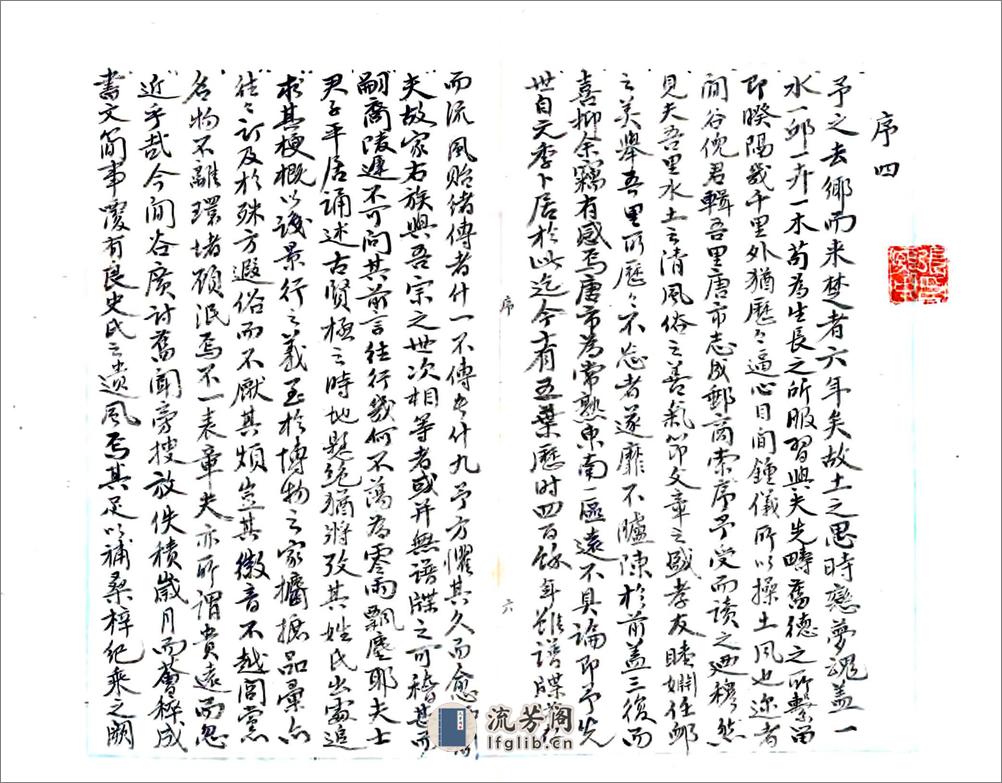 序四
予之去鄉而来楚者六年矣故土之思時戀夢魂盖一
水一邱一卉一木苟為生長之所服習與夫先疇舊德之所繫留
即暌隔幾千里外猶歷々逼心目間鍾儀所以操土風也邇者
間谷倪君輯吾里唐市志成郵筒索序予受而读之迺穆然
見夫吾里水土之清風俗之善氣節文章之盛孝友睦婣任卹
之美舉吾里所歷々不忘者遂靡不臚陳於前盖三復而
喜抑余竊有感焉唐市為常熟東南一區遠不具論即予先
世自元季卜居於此迄今十有五葉歷时四百餘年雖譜牒
序
六
而流風貽緒傳者什一不傳者什九予方懼其久而愈
夫故家右族與吾宗之世次相等者或并無譜牒之可稽甚而
嗣裔陵遲不可问其前言往行幾何不蕩為零雨飄塵耶夫士
君子平居誦述古賢極之時地懸絕猶將攷其姓氏出處追
求其梗概以識景行之義至於博物之家摭拾品彙亦
往々訂及於殊方遐俗而不厭其煩豈其徽音不越閭黨
名物不離環堵顧泯焉不一表章夫亦所謂貴遠而忽
近乎哉今间谷廣討舊聞旁搜放佚積歲月而薈稡成
書文简事覈有良史氏之遺風焉其足以補桑梓紀乘之闕
流芳阁
lfglib.cn